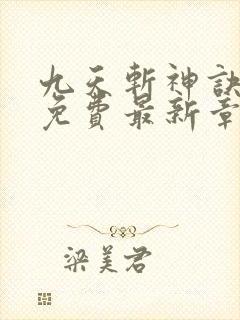 九天斬神訣
免費最新章
梁美君